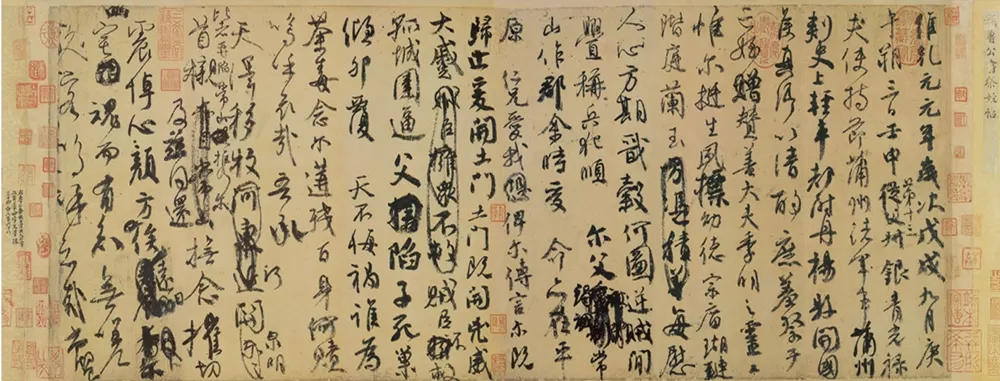 顏魯公書祭姪帖
維乾元元年歲次戊戌九月庚
午朔三日壬申第十三叔銀青光祿
夫使持節蒲州諸軍事蒲州
刺史上輕車都尉丹楊縣開國
侯真卿以清酌庶羞祭于
亡姪贈贊善大夫季明之靈曰
惟爾挺生夙標幼德宗廟瑚璉
階庭蘭玉方憑積善每慰
人心方期戩穀何圖逆賊閒
釁稱兵犯順爾父竭誠常
山作郡余時受命亦在平
原仁兄愛我俾爾傳言爾既
歸止爰開土門土門既開凶威
大蹙賊臣擁眾不救賊臣不救
孤城圍逼父陷子死巢
傾卵覆天不悔禍誰為
荼毒念爾遘殘百身何贖
嗚呼哀哉吾承
天澤移牧河關泉明
比者再陷常山攜爾
首櫬及茲同還撫念摧切
震悼心顏方俟遠日
宅魂而有知無嗟
久客嗚呼哀哉尚饗